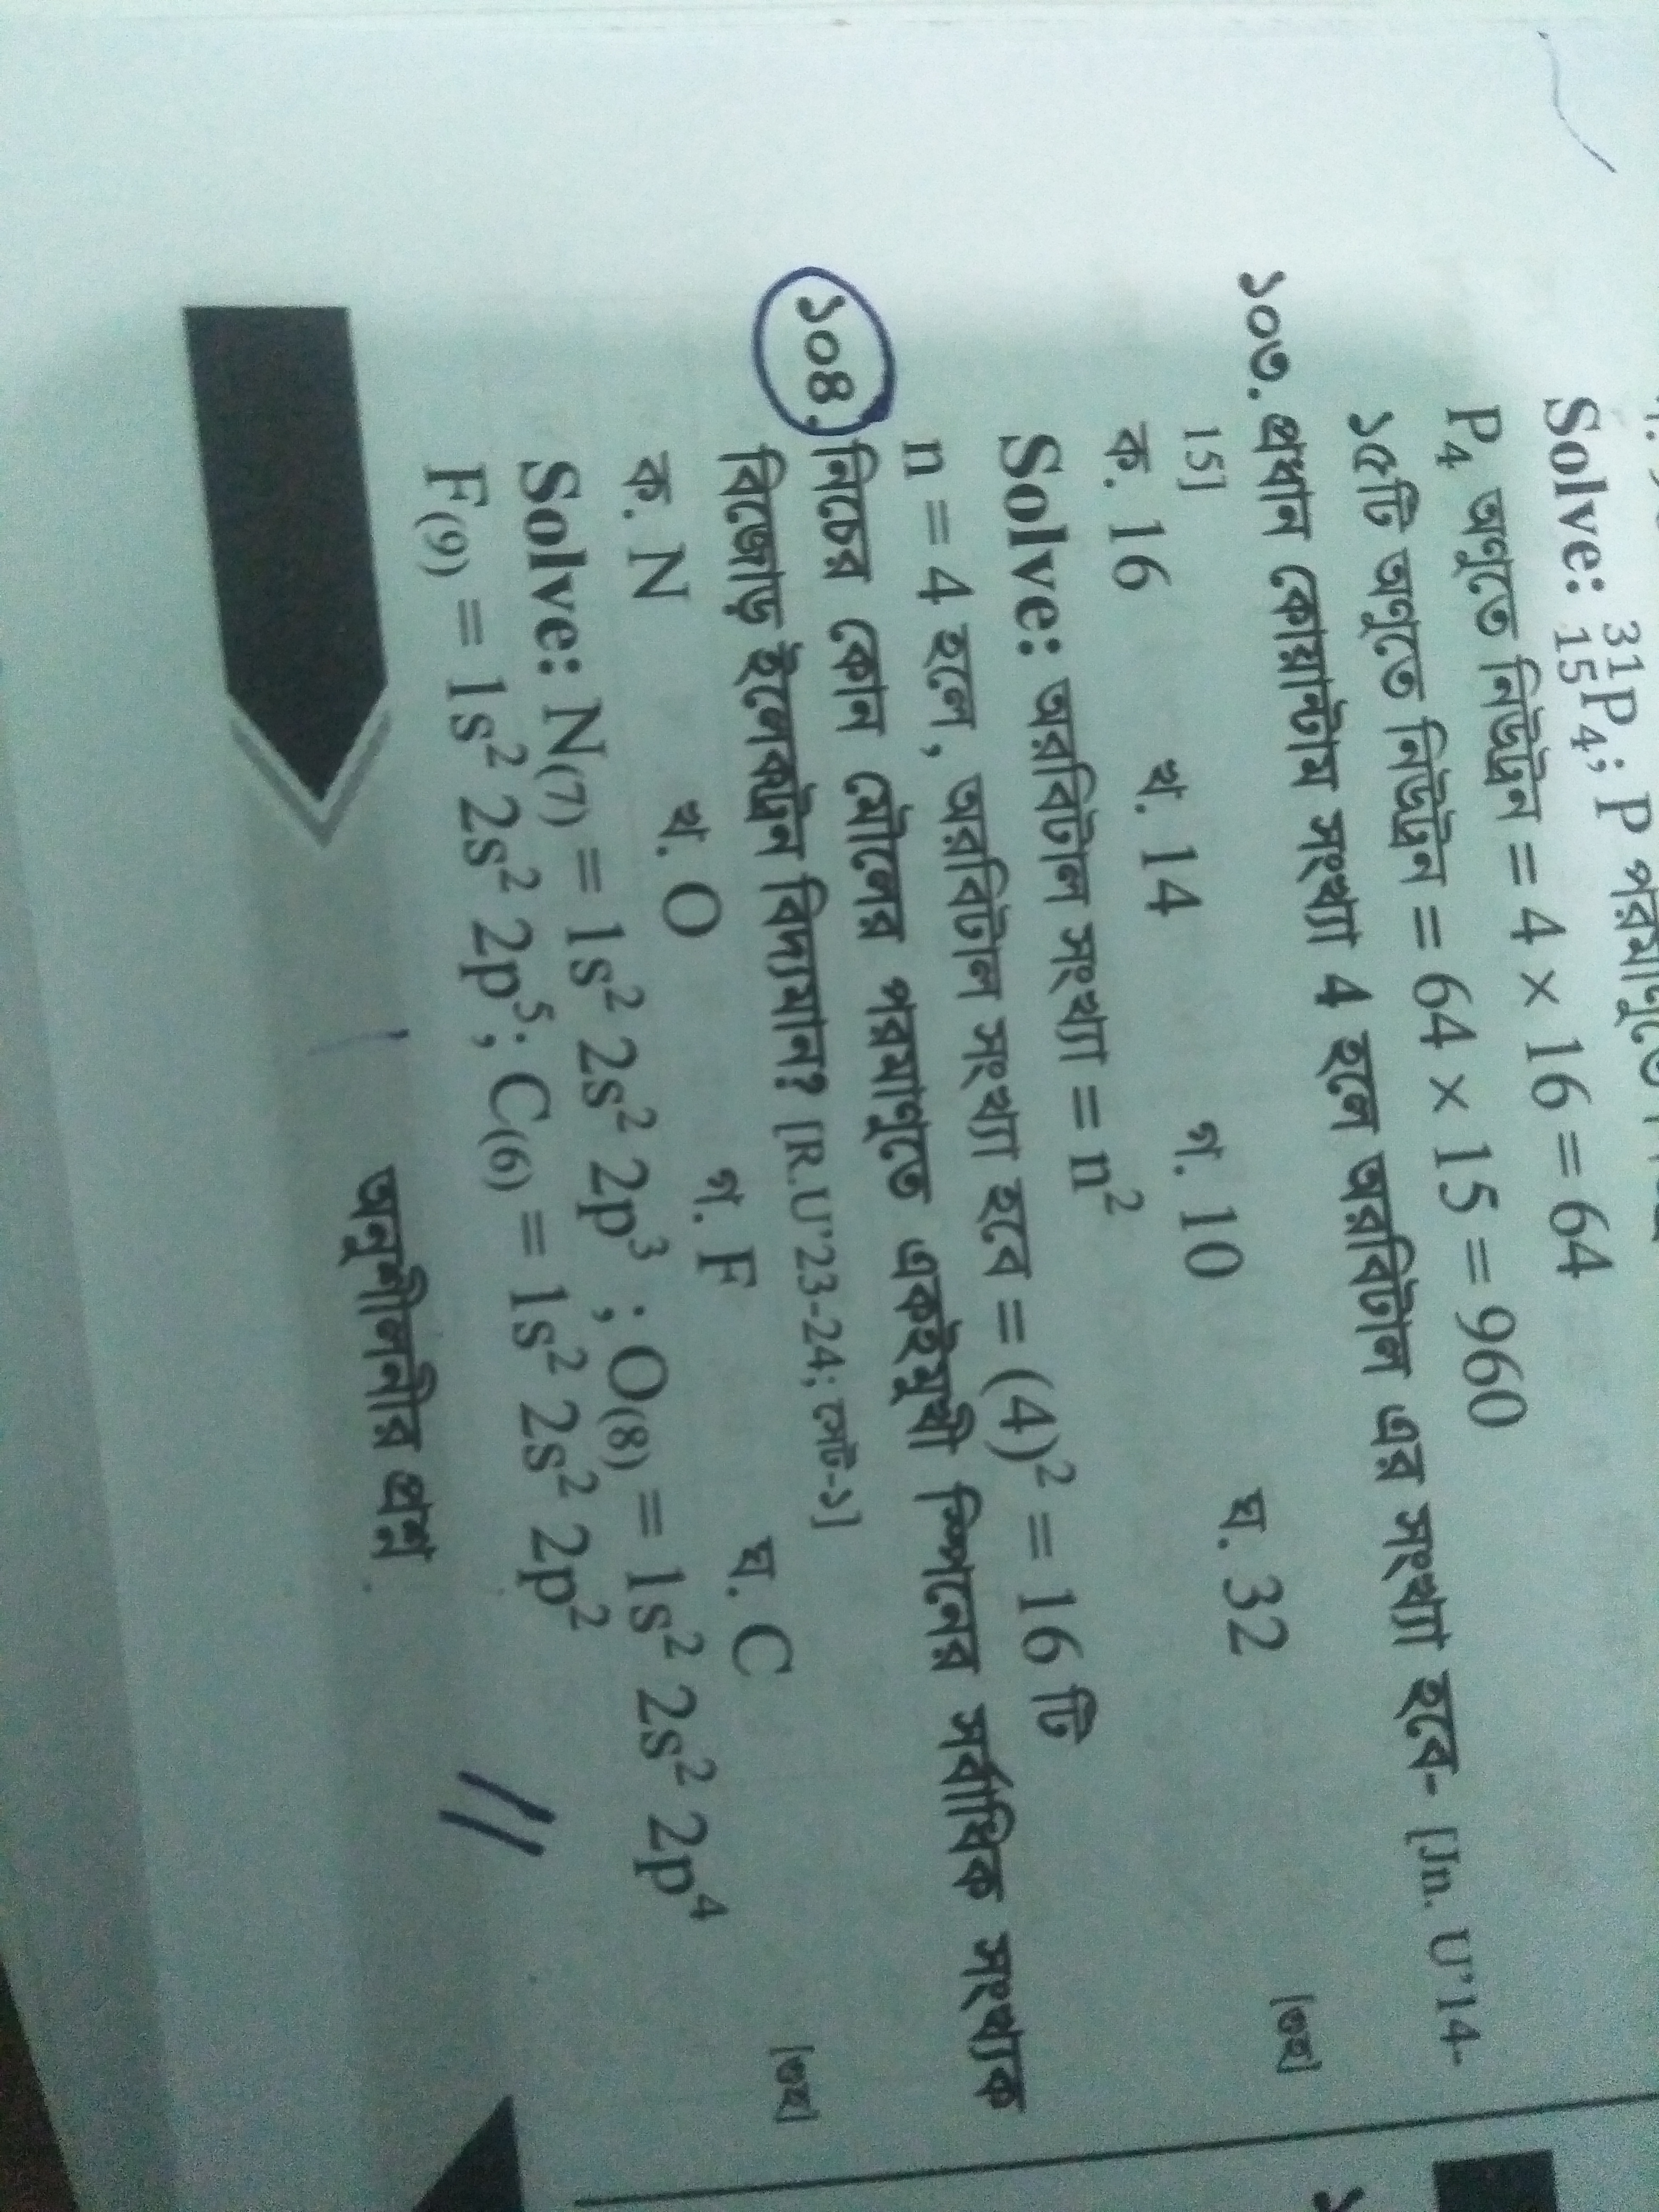 Solve: ³¹₁₅P₄; P পরমাণুতে
P₄ অণুতে নিউট্রন = 4 × 16 = 64
১৫টি অণুতে নিউট্রন = 64 × 15 = 960
১০৩. প্রধান কোয়ান্টাম সংখ্যা 4 হলে অরবিটাল এর সংখ্যা হবে- [Jn. U'14-
15] [উঃক]
ক. 16 খ. 14 গ. 10 ঘ. 32
Solve: অরবিটাল সংখ্যা = n²
n = 4 হলে, অরবিটাল সংখ্যা হবে = (4)² = 16 টি
১০৪. নিচের কোন মৌলের পরমাণুতে একইমুখী স্পিনের সর্বাধিক সংখ্যক
বিজোড় ইলেকট্রন বিদ্যমান? [R.U'23-24; সেট-১] [উঃক]
ক. N খ. O গ. F ঘ. C
Solve: N(7) = 1s² 2s² 2p³ ; O(8) = 1s² 2s² 2p⁴
F(9) = 1s² 2s² 2p⁵; C(6) = 1s² 2s² 2p²
অনুশীলনীর প্রশ্ন